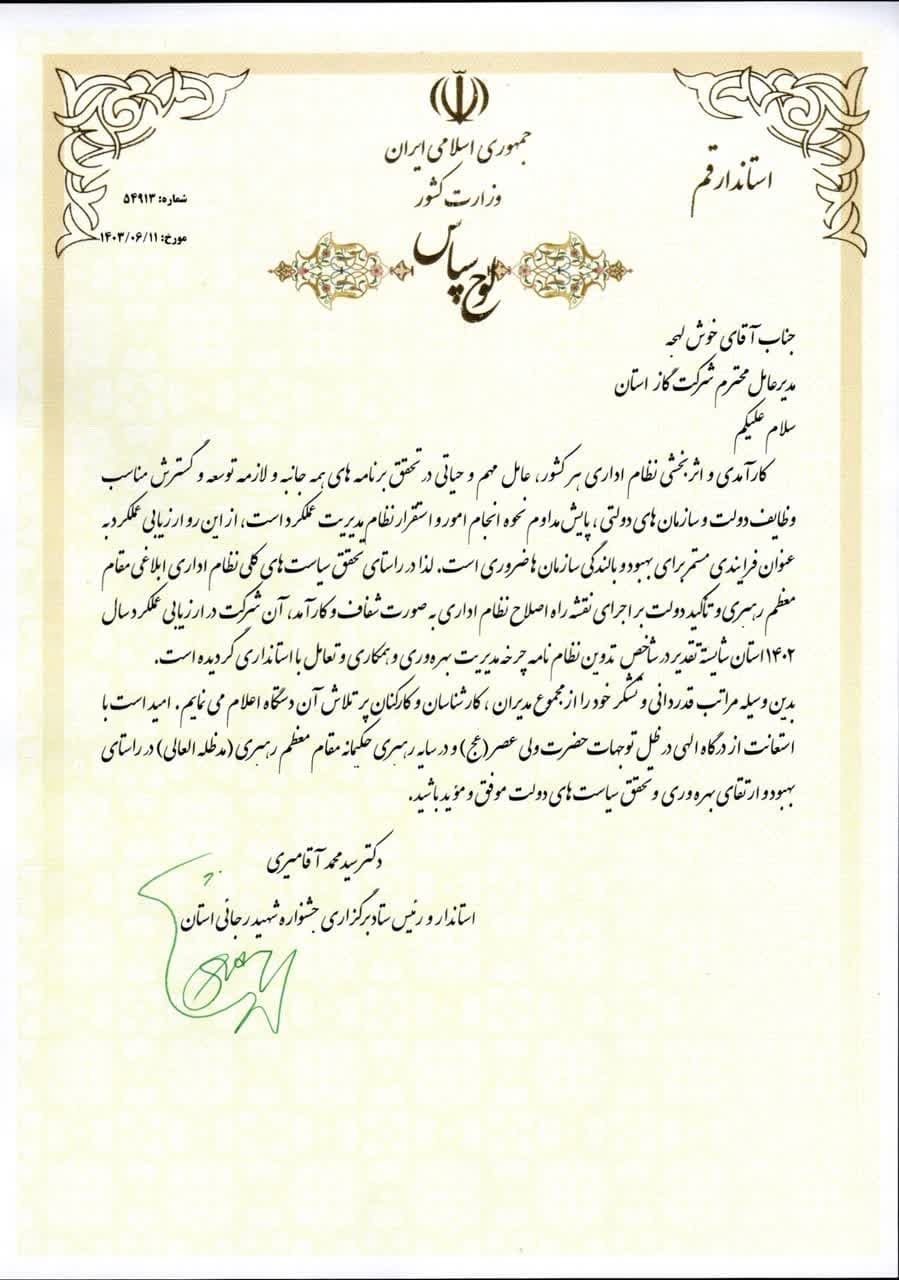 جمهوری اسلامی ایران
وزارت کشور
استاندار قم
شماره: ۵۴۹۱۳
مورخ: ۱۴۰۳/۰۶/۱۱
لوح سپاس
جناب آقای خوش لهجه
مدیرعامل محترم شرکت گاز استان
سلام علیکم
کارآمدی و اثربخشی نظام اداری هر کشور، عامل مهم و حیاتی در تحقق برنامه های همه جانبه و لازمه توسعه و گسترش مناسب
وظایف دولت و سازمان های دولتی، پایش مداوم نحوه انجام امور و استقرار نظام مدیریت عملکرد است، از این رو ارزیابی عملکرد به
عنوان فرایندی مستمر برای بهبود و بالندگی سازمان ها ضروری است. لذا در راستای تحقق سیاست های کلی نظام اداری ابلاغی مقام
معظم رهبری و تأکید دولت بر اجرای نقشه راه اصلاح نظام اداری به صورت شفاف و کارآمد، آن شرکت در ارزیابی عملکرد سال
۱۴۰۲ استان شایسته تقدیر در شاخص تدوین نظام نامه چرخه مدیریت بهره وری و همکاری و تعامل با استانداری گردیده است.
بدین وسیله مراتب قدردانی و تشکر خود را از مجموع مدیران، کارشناسان و کارکنان پر تلاش آن دستگاه اعلام می نمایم. امید است با
استعانت از درگاه الهی در ظل توجهات حضرت ولی عصر (عج) و در سایه رهبری حکیمانه مقام معظم رهبری (مدظله العالی) در راستای
بهبود و ارتقای بهره وری و تحقق سیاست های دولت موفق و مؤید باشید.
دکتر سید محمد آقامیری
استاندار و رئیس ستاد برگزاری جشنواره شهید رجائی استان